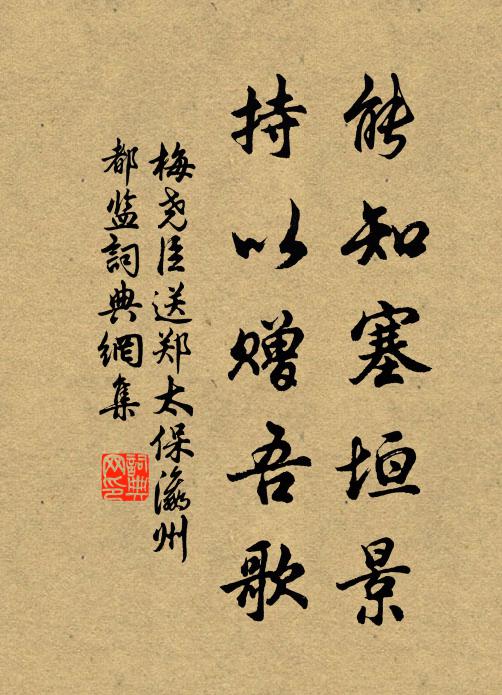 能知塞垣景
持以赠吾歌
梅尧臣送郑太保瀛州
都监詞典網集
詞典网印